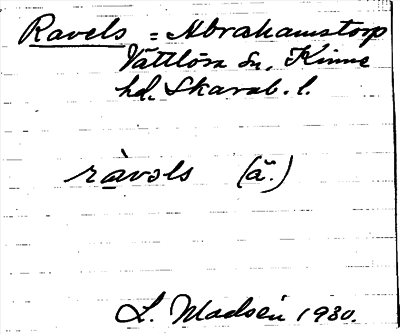 Ravels = Abrahamstorp
Vättlösa sn, Kinne
hd, Skarab. l.
ràvəls (ä.)
L. Madsén 1930.